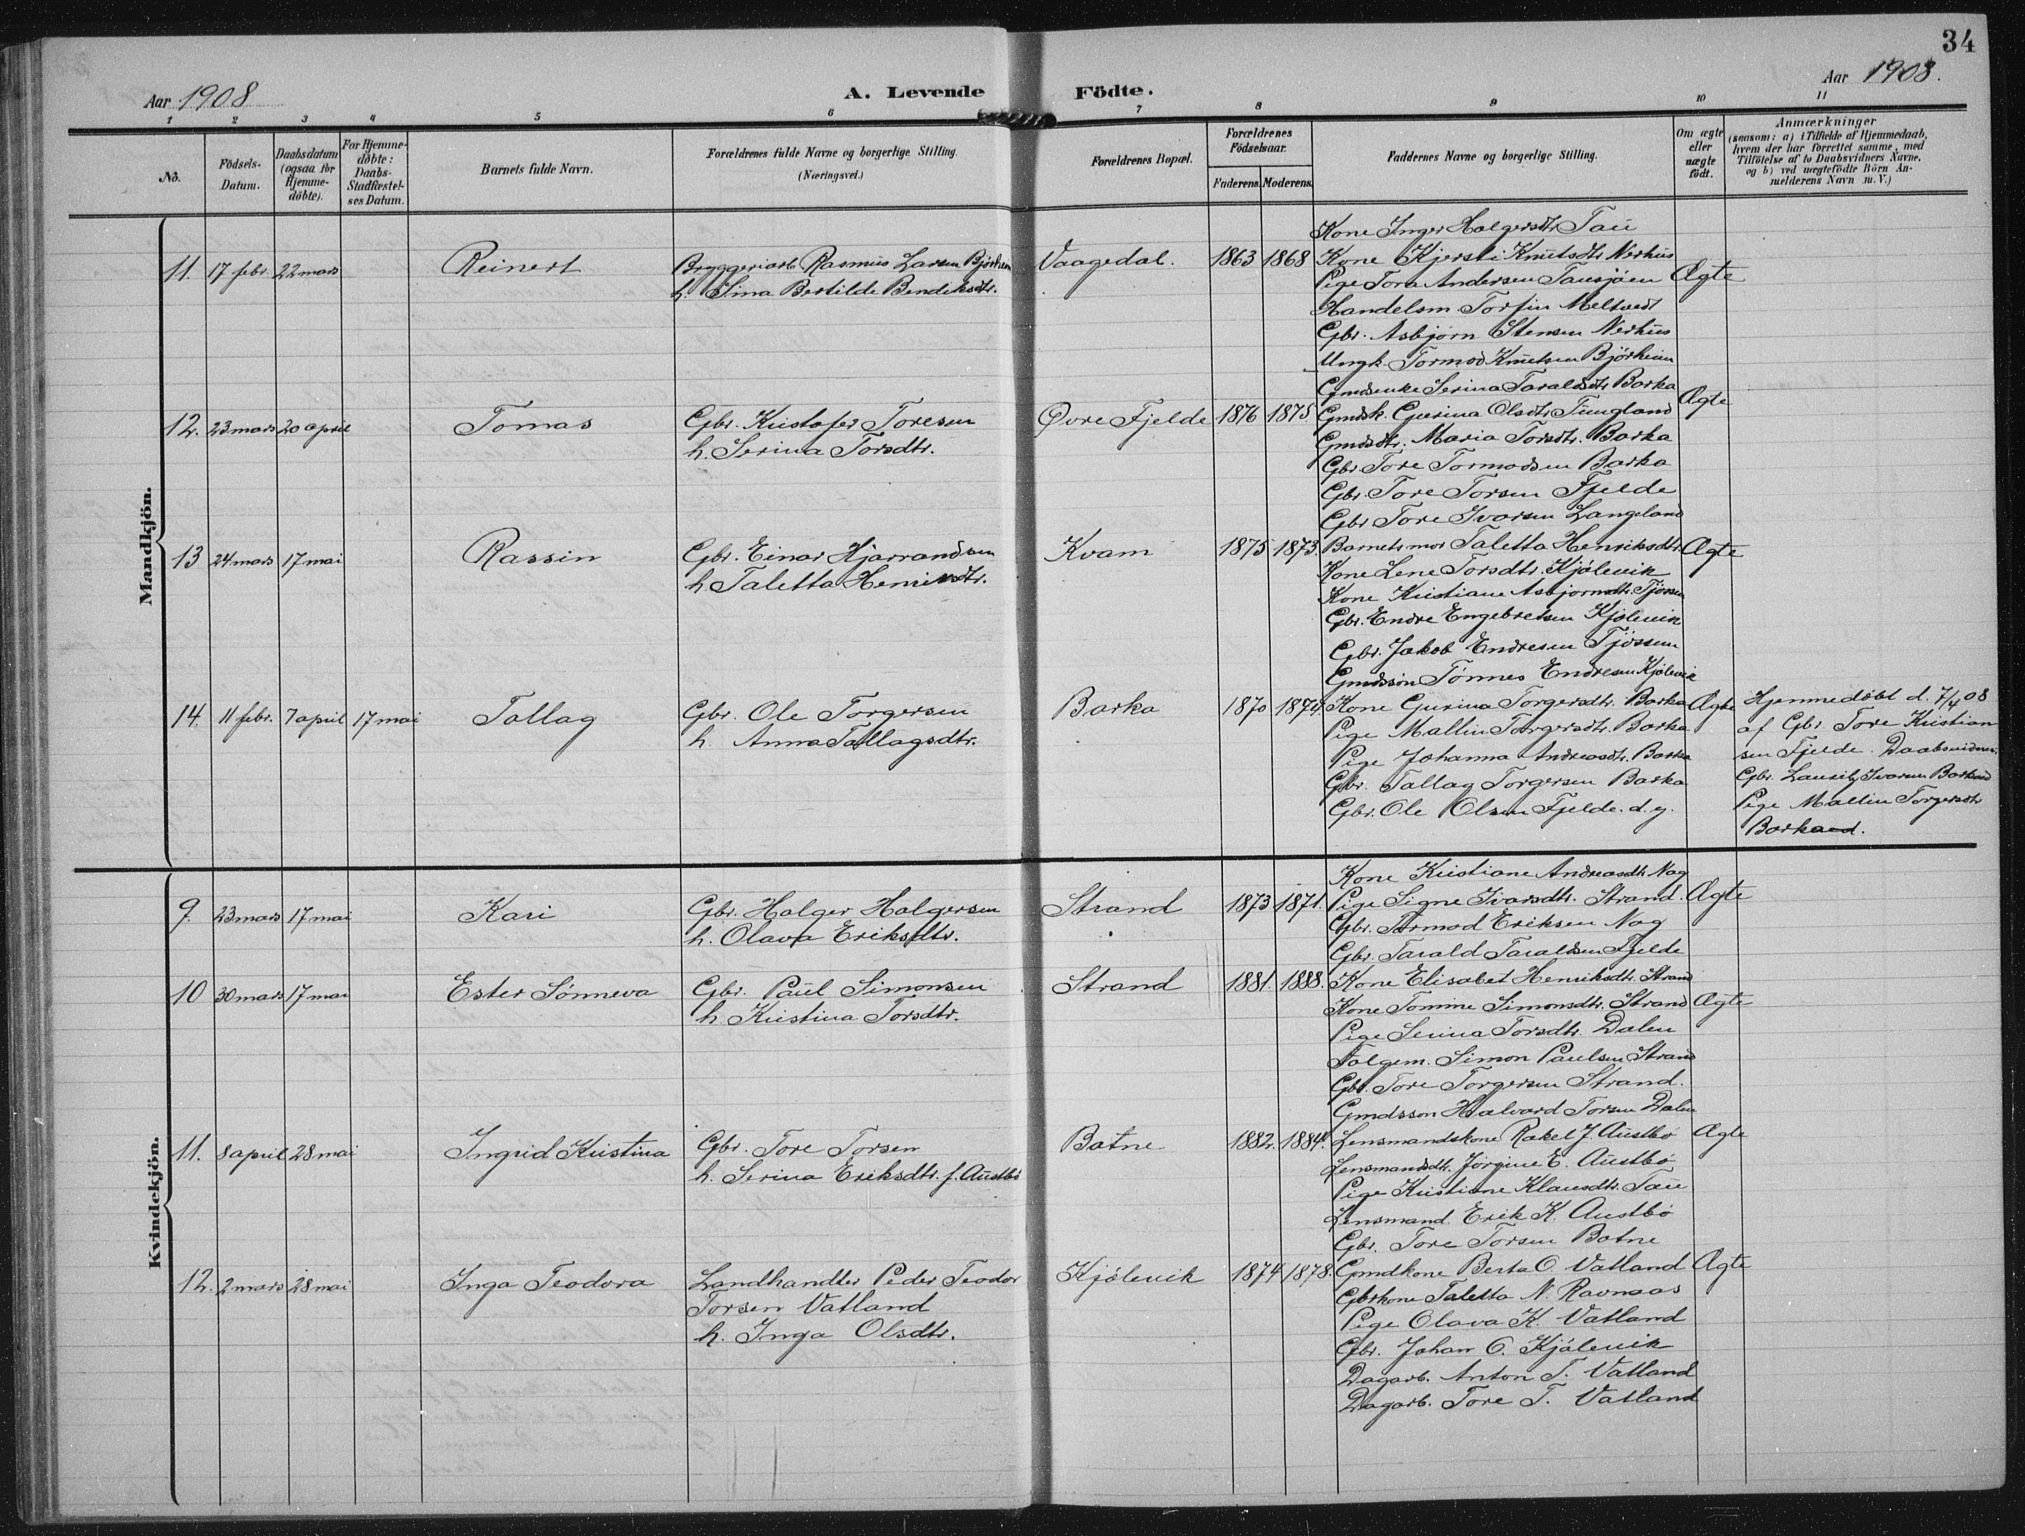 34
Aar 1908
A. Levende Födte.
Aar 1908.
1 2 3 4 5 6 7 8 9 10 11
No.
Födsels-Datum.
Daabsdatum (ogsaa for Hjemme-döbte).
For Hjemme-döbte: Daabs-Stadfæstel-ses Datum.
Barnets fulde Navn.
Forældrenes fulde Navne og borgerlige Stilling.
(Næringsvei.)
Forældrenes Bopæl.
Forældrenes Födselsaar.
Faderens. Moderens.
Faddernes Navne og borgerlige Stilling.
Om ægte eller uægte födt.
Anmærkninger
(saasom: a) i Tilfælde af Hjemmedaab,
hvem der har forrettet samme, med
Tilföielse af to Daabsvidners Navne,
og b) ved uægtefödte Börn An-
melderens Navn m. V.)
Mandkjön.
Kone Inger Holgersdtr Tau
11. 17 febr. 22 mars Reinert Bryggeriarb Rasmus Larsen Bjørheim Vaagedal. 1863 1868 Kone Kjersti Knutsdtr Nerhus
h. Sina Bertilde Bendiksdtr. Pige Tora Andersen Tausjøen Ægte
Handelsm. Torfin Meltvedt
Gbr. Asbjørn Stensen Nerhus
Ungk. Tormod Knutsen Bjørheim
Gmdsenke Serina Taraldsdtr Barka
12. 23 mars 20 april Tomas Gbr. Kristofer Toresen Øvre Fjelde 1876 1875 Gmdsk. Gurina Olsdtr Tungland Ægte
h. Serina Torsdtr. Gmdsdtr. Maria Torsdtr. Barka
Gbr Tore Tormodsen Barka
Gbr. Tore Torsen Fjelde
Gbr Tore Ivarsen Langeland
13 24 mars 17 mai Rassin Gbr. Einar Hjarrandsen Kvam 1875 1873. Barnets mor Taletta Henriksdtr. Ægte
h. Taletta Henriksdtr. Kone Lene Torsdtr. Kjølevik
Kone Kristiane Asbjornsdtr. Tjøssen
Gbr. Endre Engebretsen Kjølevik
Gbr. Jakob Endresen Tjøssem
Gmdssøn Tønnes Endresen Kjølevik
14. 11 febr. 7 april 17 mai Tallag Gbr. Ole Torgersen Barka 1870 1874. Kone Gurina Torgersdtr Barka Ægte Hjemmedøbt d. 7/4 08
h. Anna Tallagsdtr. Pige Mallin Torgersdtr. Barka af Gbr. Tore Kristian
Pige Johanna Andreasdtr. Barka sen Fjelde. Daabsvidner:
Gbr. Tallag Torgersen Barka Gbr. Ivarsen
Gbr. Ole Olsen Fjelde. d.y. Pige Mallin Torgersdtr
Barkaed.
Kvindekjön.
Kone Kristiane Andreasdtr. Nag
9. 23 mars 17 mai Kari Gbr. Holger Holgersen Strand 1873 1871. Pige Signe Ivarsdtr. Strand. Ægte
h. Olava Eriksdtr. Gbr. Tormod Eriksen Nag
Gbr. Tarald Taraldsen Fjelde
10 30 mars 17 mai Ester Sønneva Gbr. Paul Simonsen Strand 1881. 1888. Kone Elisabet Henriksdtr. Strand
h. Kristina Torsdtr. Kone Tomine Simonsdtr. Strand Ægte
Pige Serina Torsdtr. Dalen
Folgem. Simon Paulsen Strand
Gbr. Tore Torgersen Strand.
Gmdsson Halvard Torsen Dalen
11. 8 april 28 mai Ingrid Kristina Gbr. Tore Torsen Botne 1882. 1884. Lensmandskone Rakel J. Austbø Ægte
h. Serina Eriksdtr. f. Austbø Lensmandsdtr. Jørgine E. Austbø
Pige Kristiane Klausdtr. Tau
Lensmand Erik K. Austbø
Gbr. Tore Torsen Botne
12. 2 mars 28 mai Inga Teodora Landhandler Peder Teodor Kjølevik 1874 1878. Gmdkone Berta O. Vatland Ægte
Torsen Vatland Gbrkone Taletta N. Ravnaas
h. Inga Olsdtr. Pige Olava K. Vatland
Gbr. Johan O. Kjølevik
Dagarb. Anton T. Vatland
Dagarb. Tore T. Vatland